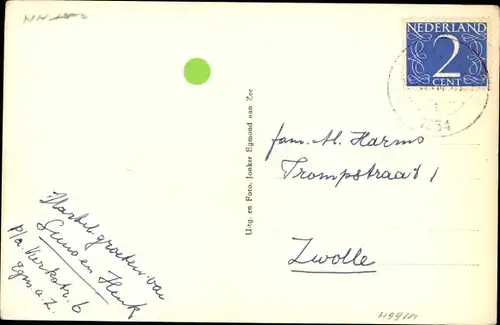 NEDERLAND
2
CENT
1954
Uitg. en Foto. Jonker Egmond aan Zee
fam. M. Harms
Trompstraat 1
Zwolle
Hartel. groeten van
en Henk
p/a. Kerkstr. 6
Egm. a. Z.